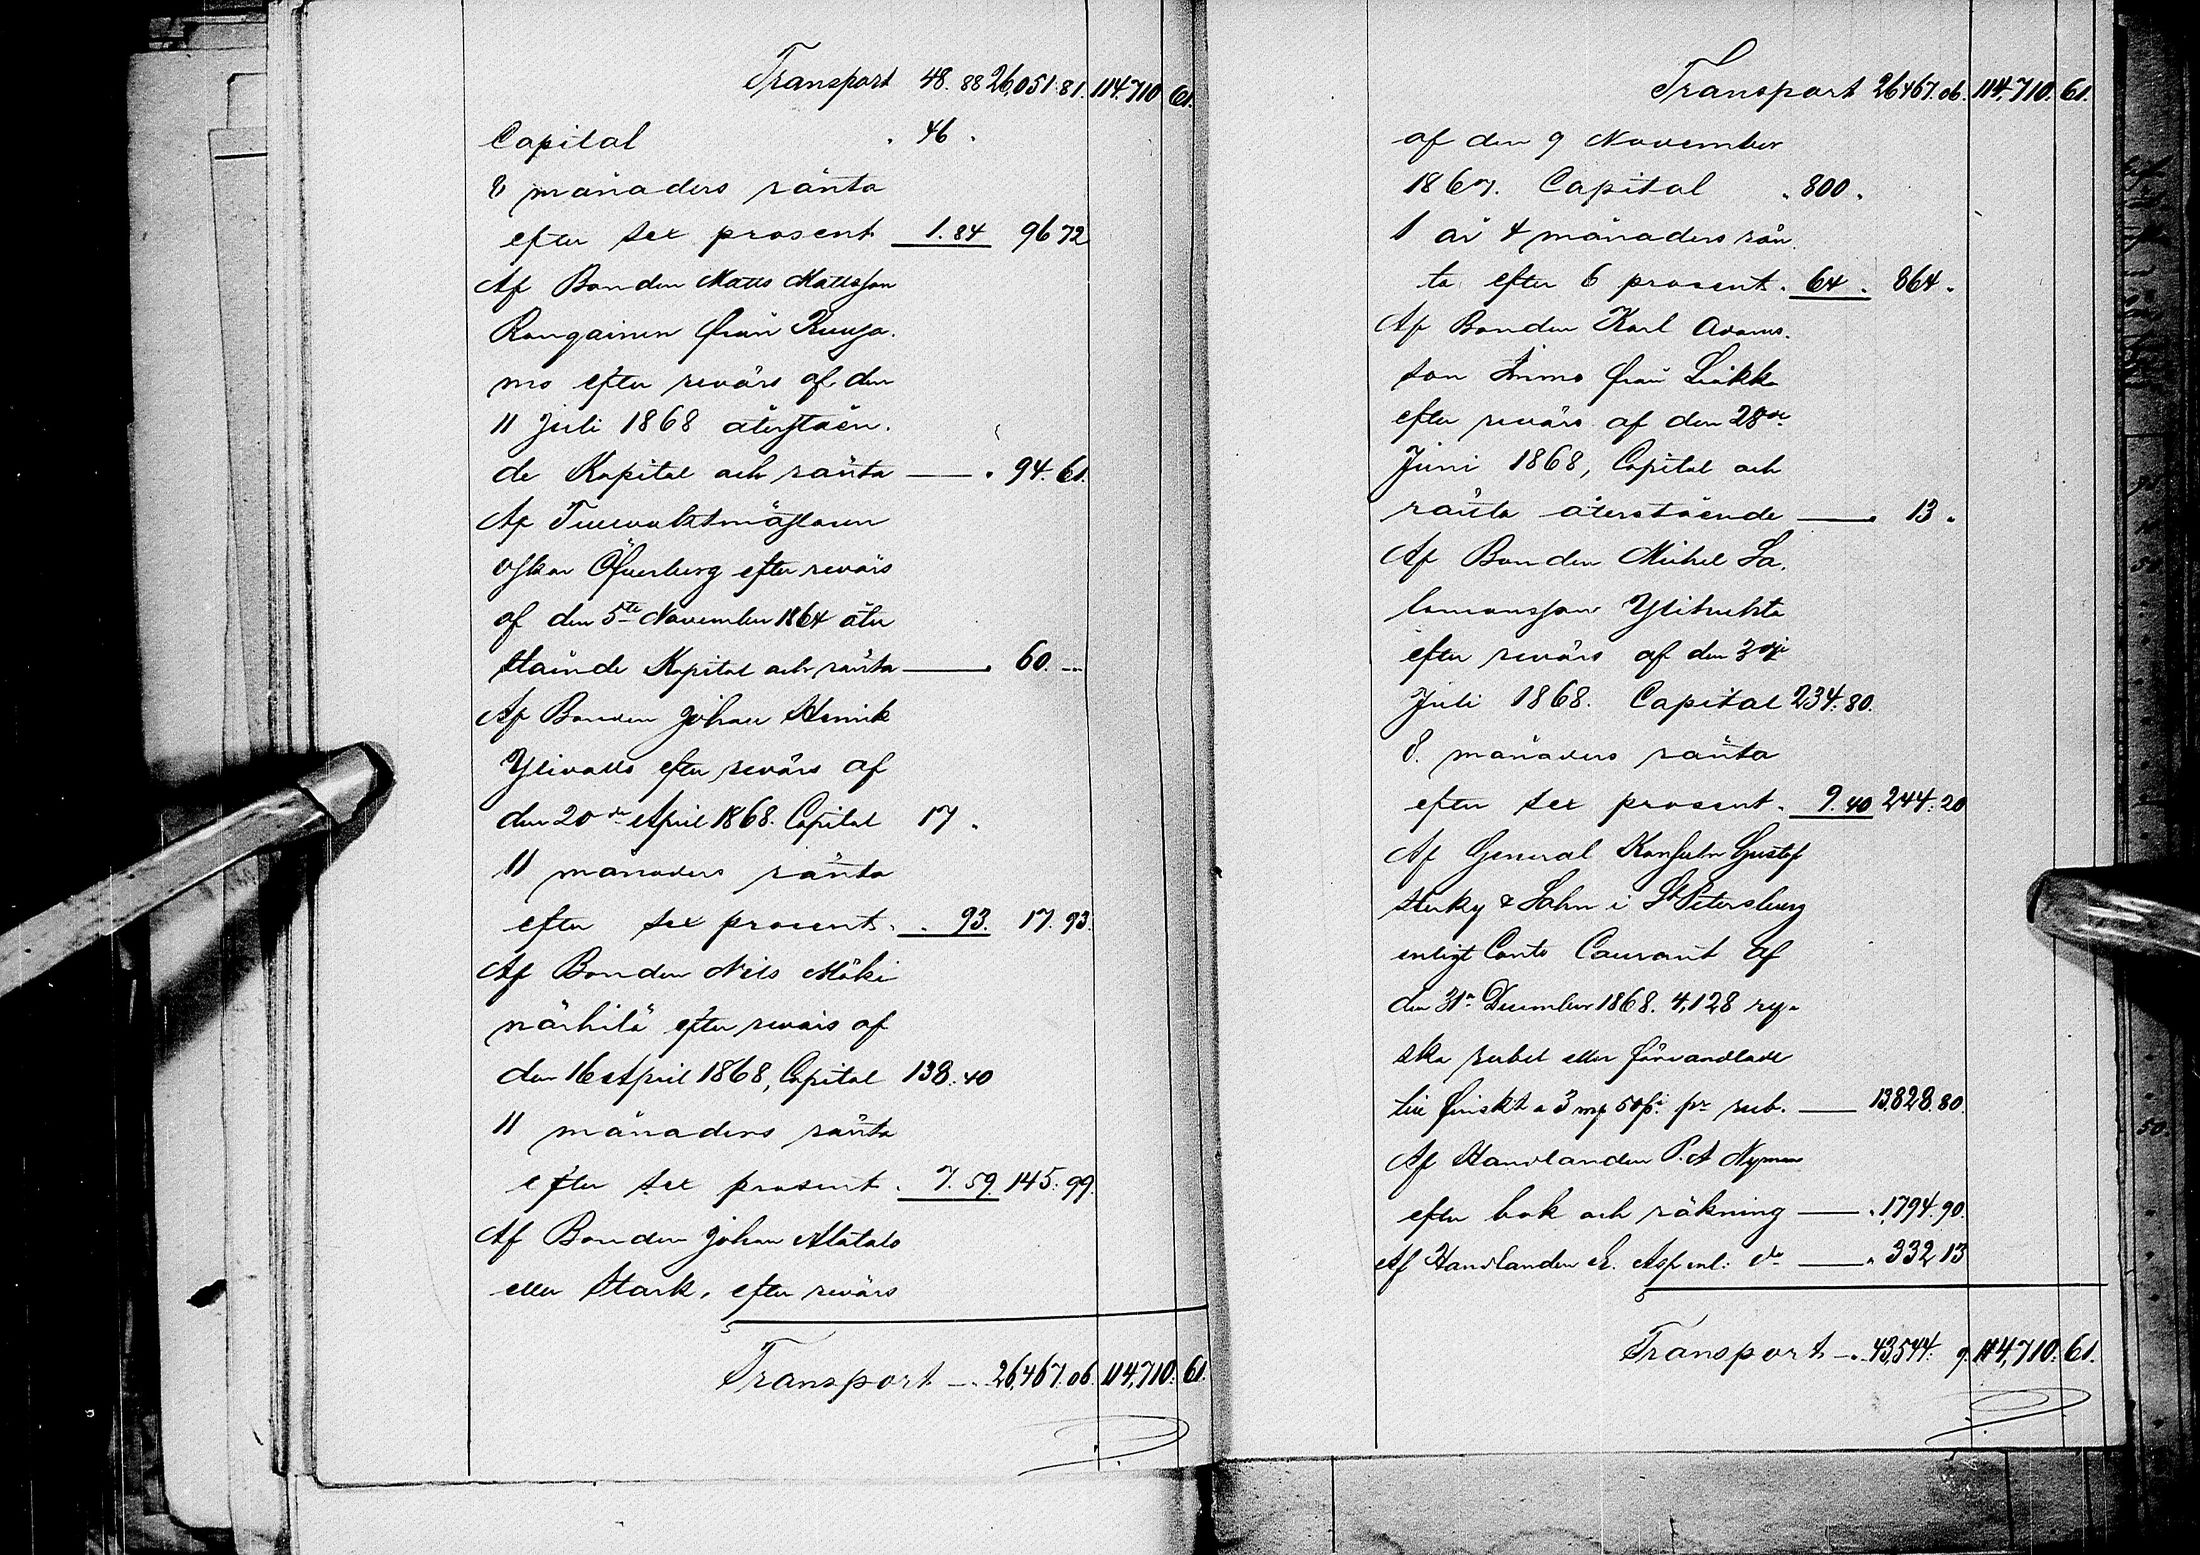 Transport 48. 88 26,051. 81. 114,710 61.
Capital . 46 .
8 månaders ränta
efter sex prosent 1. 84 96 72
Af Bonden Matts Mattsson
Rongainen från Ruuja.
mo efter revärs af den
11 Juli 1868 återståen.
de Kapital och ränta — . 94. 61.
Af Tullvaktmästaren
Oskar Öfverberg efter revärs
af den 5te November 1864 åter
stående Kapital och ränta — . 60. —
Af Bonden Johan Henrik
Ylivatts efter revärs af
den 20de April 1868. Capital 17 .
11 månaders ränta
efter sex prosent . . 93. 17. 93.
Af Bonden Nils Mäki
närhilä efter revärs af
den 16 April 1868, Capital 138. 40
11 månaders ränta
efter sex prosent . 7. 59. 145. 99.
Af Bonden Johan Alatalo
eller Stark, efter revärs
Transport — . 26,467. 06. 114,710. 61.
Transport 26467. 06. 114,710. 61.
af den 9 November
1867. Capital . 800 .
1 år 4 månaders rän.
ta efter 6 prosent . 64 . 864 .
Af Bonden Karl Adams.
son Immo från Liakka
efter revärs af den 28de
Juni 1868, Capital och
ränta återstående — . 13 .
Af Bonden Mickel Sa.
lomonsson Ylituhta
efter revärs af den 3dje
Juli 1868. Capital 234. 80.
8. månaders ränta
efter sex prosent . 9. 40 244. 20
Af General Konsuln Gustaf
Sterky & Sohn i St Petersburg
enligt Conto Courant af
den 31n December 1868. 4,128 rys
ska rubel eller förvandlade
till finskt a 3 mk 50 pi pr rub. — 13,828. 80.
Af Handlanden P. A Nyman
efter bok och räkning — . 1,794. 90.
Af Handlanden E. Asp enl: do — . 332 13
Transport — . 43,544. 9. 114,710. 61.